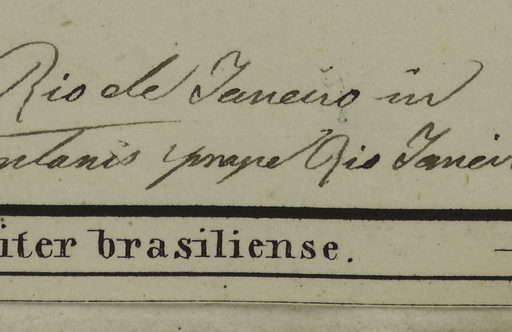 Rio de Janeiro in
ntanis prope Rio Janeir
iter brasiliense.